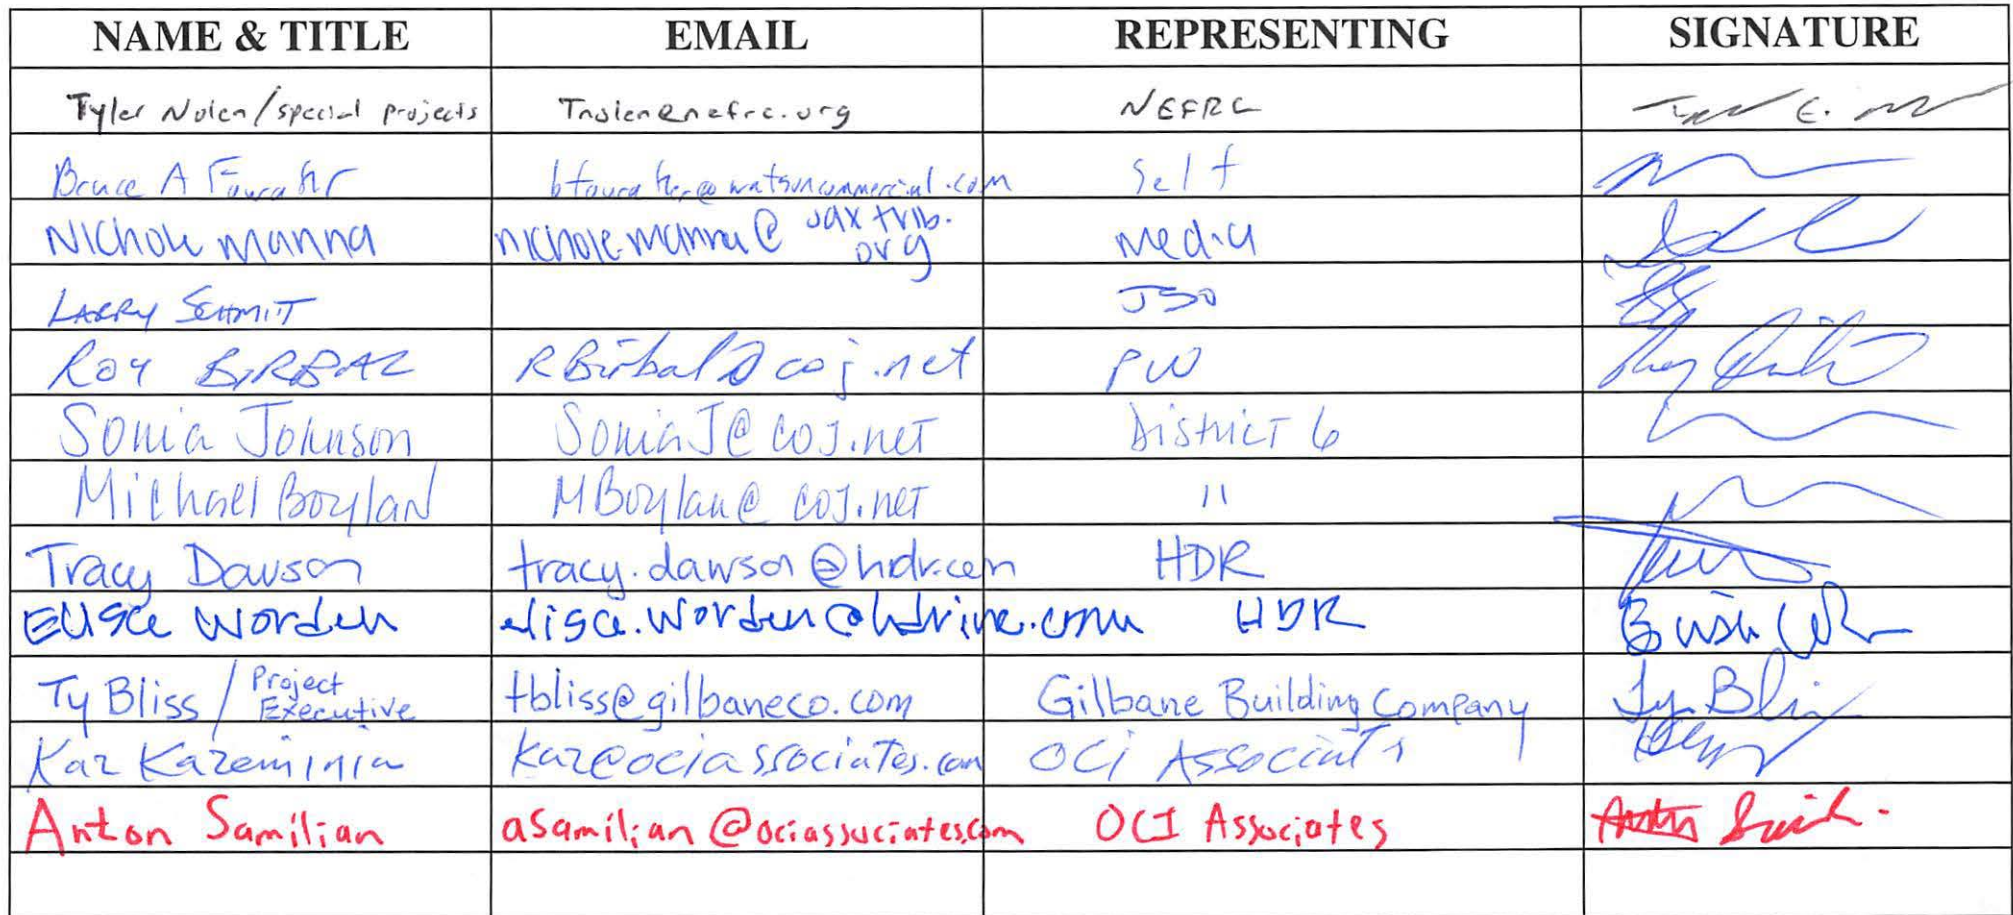 NAME & TITLE EMAIL REPRESENTING SIGNATURE
Tyler Nolen/special projects Tnolen@nefrc.org NEFRC
Bruce A Fouraker bfouraker@watsoncommercial.com Self
Nichole Manna nichole.manna@jaxtrib.
org Media
LARRY SCHMITT JSO
Roy BIRBAL RBirbal@coj.net PW
Sonia Johnson SoniaJ@coj.net District 6
Michael Boylan MBoylan@coj.net 11
Tracy Dawson tracy.dawson@hdr.com HDR
Elise Worden elisa.worden@hdrinc.com HDR
Ty Bliss / Project
Executive tbliss@gilbaneco.com Gilbane Building Company Ty Bliss
Kaz Kazeminia kaz@ociassociates.com OCI Associates
Anton Samilian asamilian@ociassociates.com OCI Associates